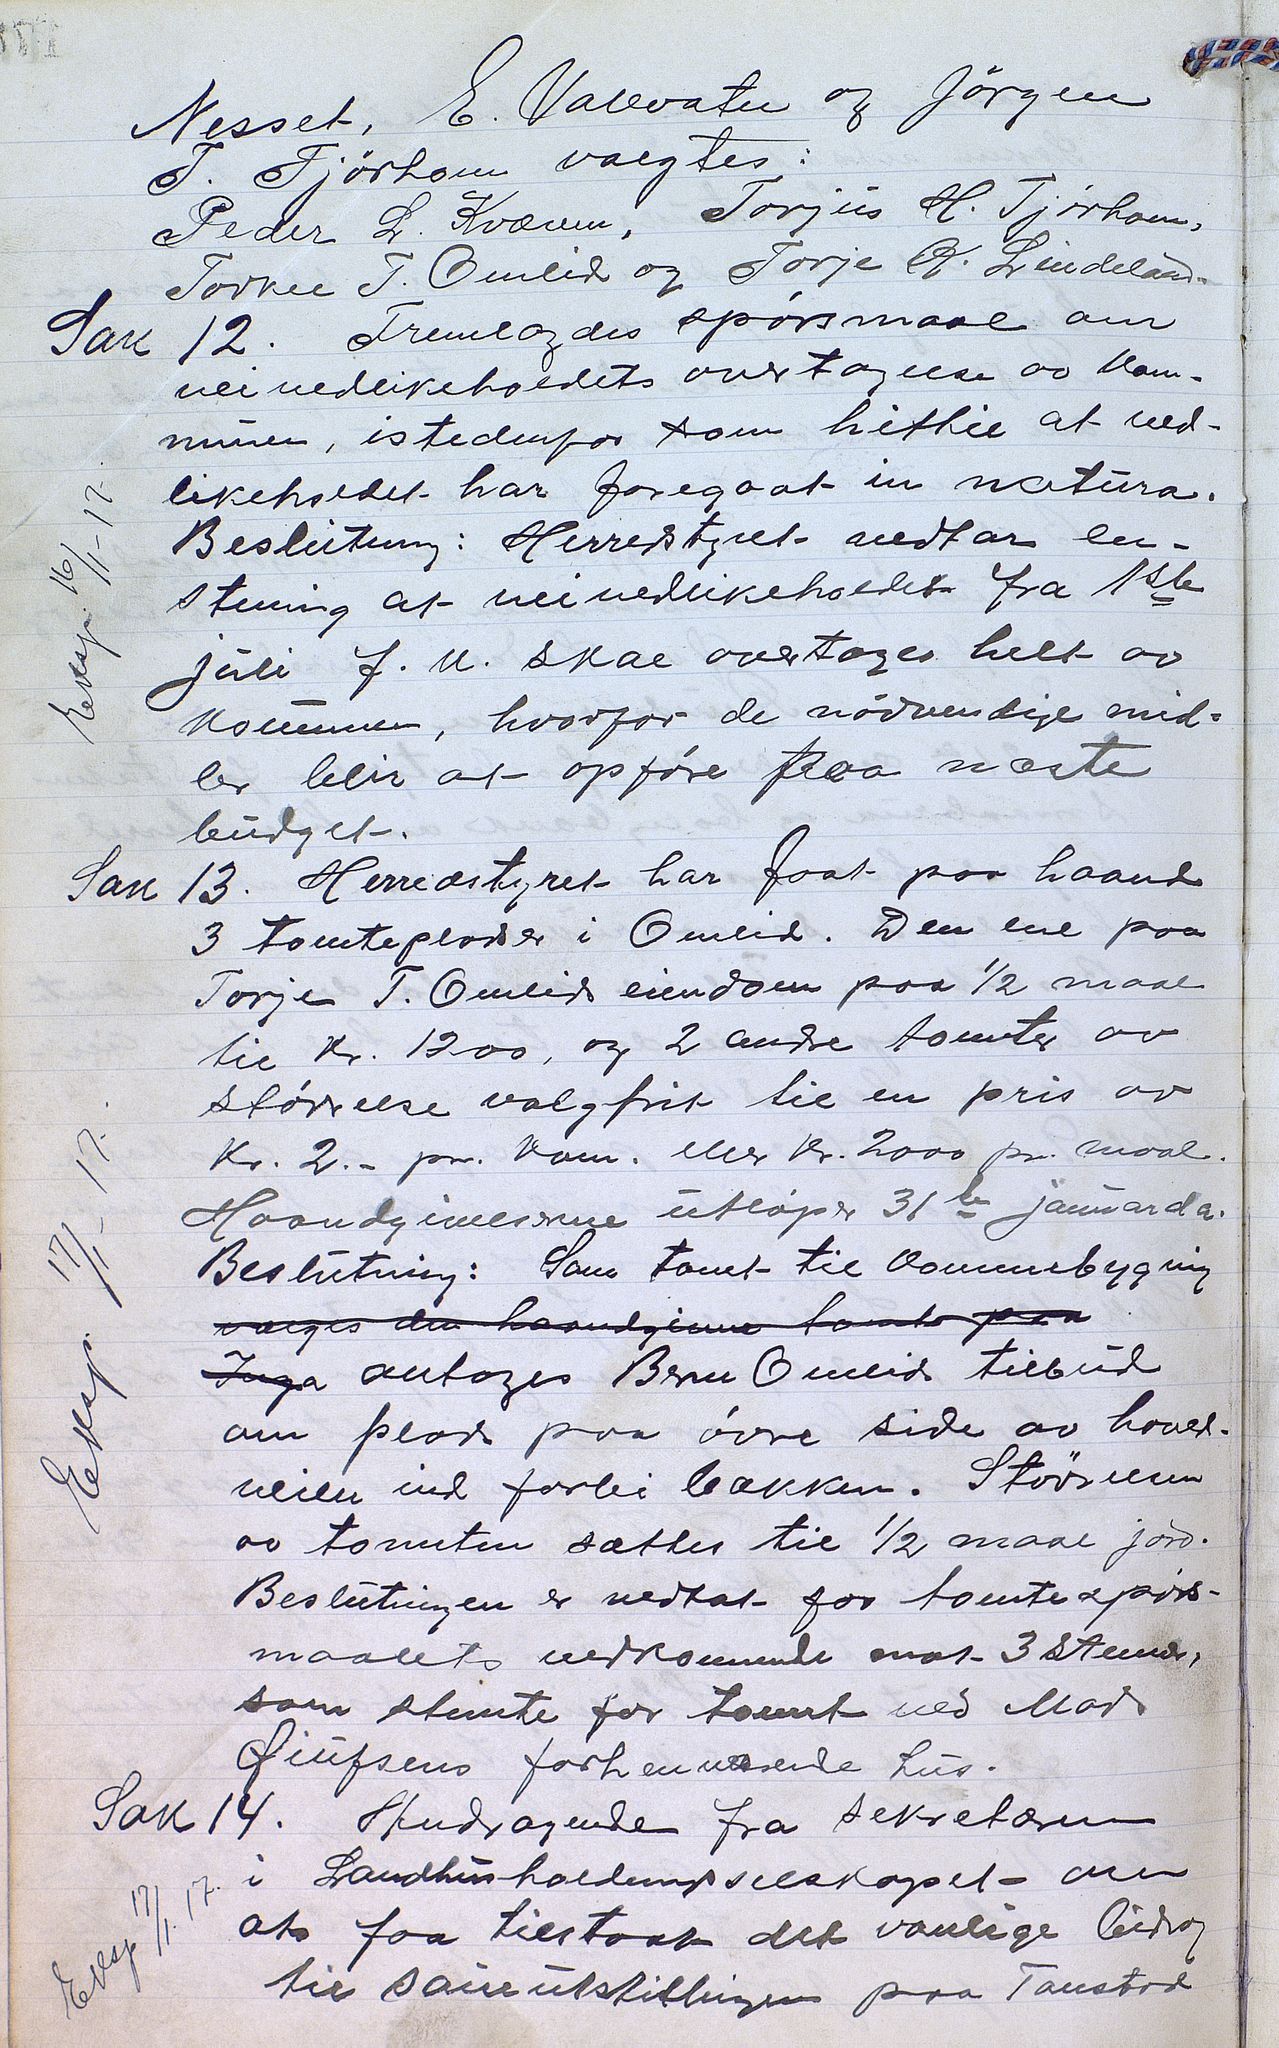 Nesset, E. Vatvatn og Jörgen
T. Tjörhom valgtes:
Peder L. Kvæven, Torjus H. Tjörhom,
Torkel T. Omlid og Torje K. Lindeland.
Sak 12. Fremlagdes spörsmaal om
veivedlikeholdets overtagelse av kom-
munen, istedenfor som hittil at ved-
likeholdet har foregaat in natura.
Beslutning: Herredstyret vedtar en-
stemig at veivedlikeholdet fra 1ste
juli f. k. skal overtages helt av
kommunen, hvorfor de nödvendige mid-
ler blir at opföre paa næste
budget.
Eksp. 16/1-17.
Sak 13. Herredstyret har faat paa haand
3 tomtepladser i Omlid. Den ene paa
Torje T. Omlids eiendom paa 1/2 maal
til Kr. 1200, og 2 andre tomter av
störrelse valgfrit til en pris av
Kr. 2.- pr. kvm. eller Kr. 2000 pr. maal.
Haandgivelserne utlöper 31te januar d.a.
Beslutning: Som tomt til kommunebygning
valges den haandgivne tomt paa
Inga antages Bern Omlids tilbud
om plads paa övre side av hoved-
veien ind forbi bækken. Störrelsen
av tomten sættes til 1/2 maal jord.
Beslutningen er vedtat for tomtespörs-
maalets vedkommende mot 3 stemmer,
som stemte for tomt ved Mads
Gjufsens forhenværende hus.
Eksp 17/1-17.
Sak 14. Andragende fra sekretæren
i Landhusholdningsselskapet om
at faa tilstaat det vanlige bidrag
til saueutstillingen paa Tonstad
Eksp 17/1.17.